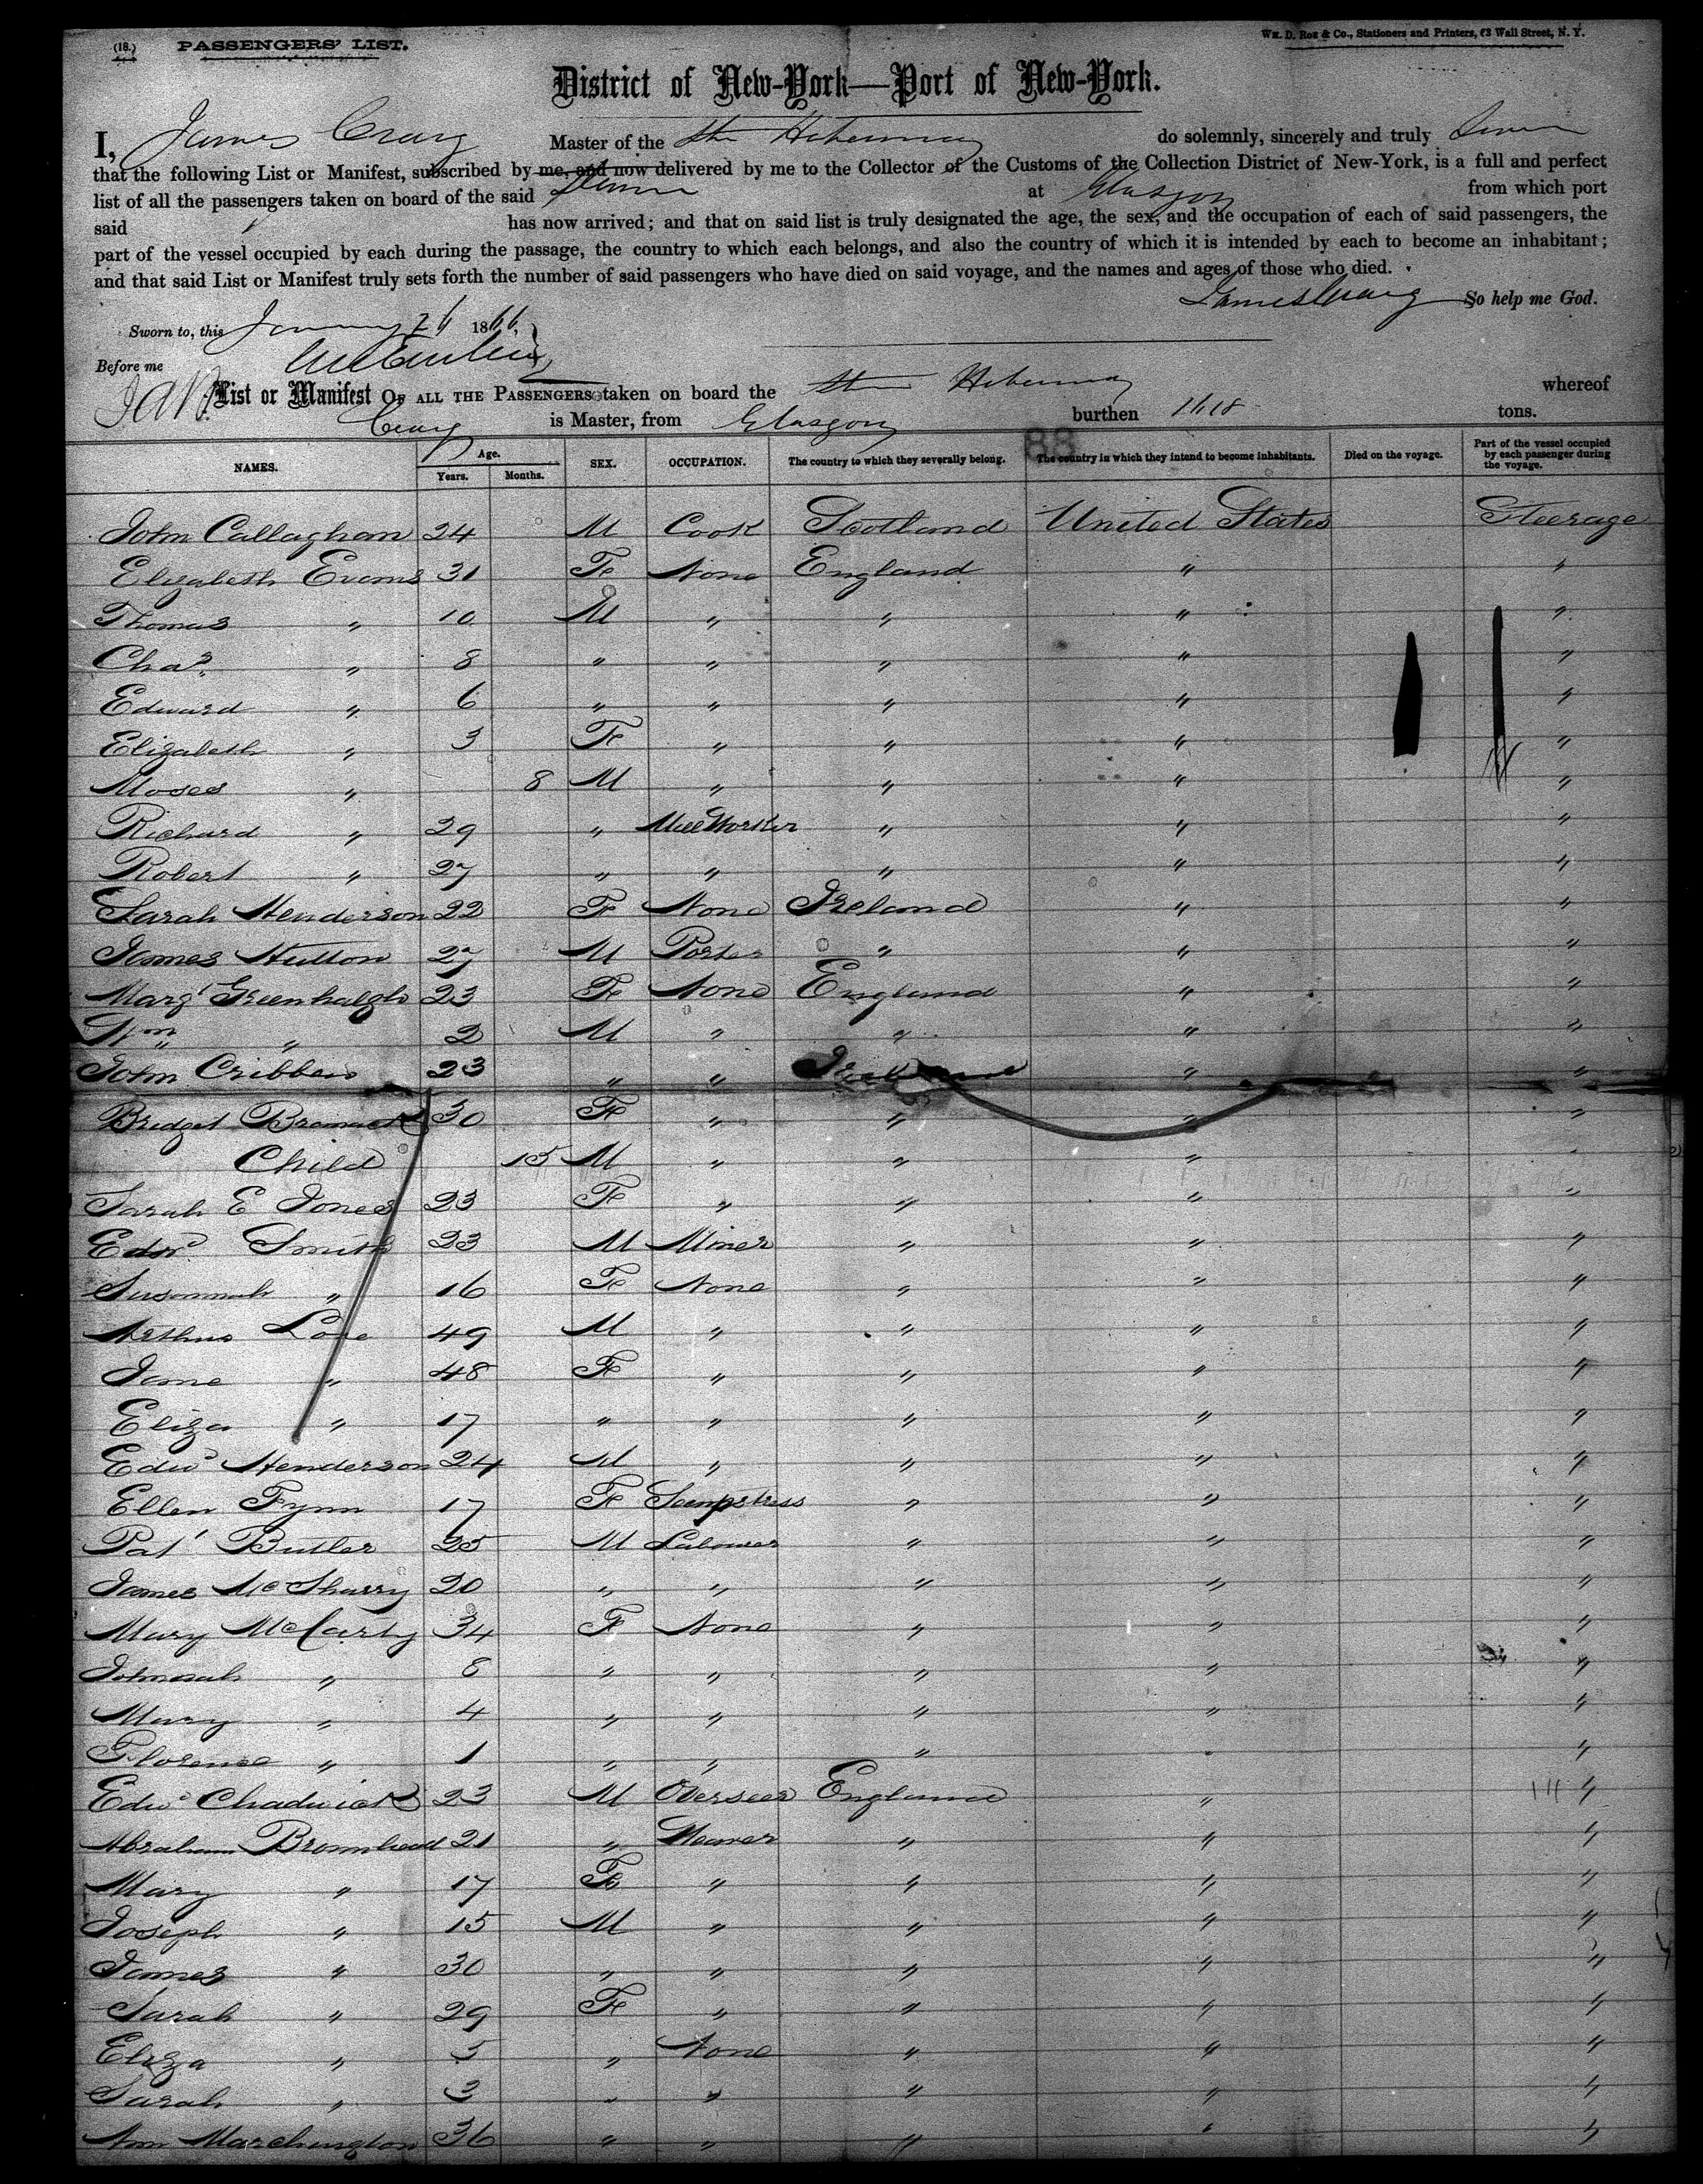 (18.) PASSENGERS' LIST. Wm. D. Roe & Co., Stationers and Printers, 63 Wall Street, N. Y.
District of New-York—Port of New-York.
I, James Craig Master of the Str Hibernia do solemnly, sincerely and truly Swear
that the following List or Manifest, subscribed by me, and now delivered by me to the Collector of the Customs of the Collection District of New-York, is a full and perfect
list of all the passengers taken on board of the said Steamer at Glasgow from which port
said has now arrived; and that on said list is truly designated the age, the sex, and the occupation of each of said passengers, the
part of the vessel occupied by each during the passage, the country to which each belongs, and also the country of which it is intended by each to become an inhabitant;
and that said List or Manifest truly sets forth the number of said passengers who have died on said voyage, and the names and ages of those who died.
James Craig So help me God.
Sworn to, this January 26 1866,
Before me
JAN List or Manifest OF ALL THE PASSENGERS taken on board the Str Hibernia whereof
Craig is Master, from Glasgow burthen 1618 tons.
88
NAMES. Age. Years. Months. SEX. OCCUPATION. The country to which they severally belong. The country in which they intend to become inhabitants. Died on the voyage. Part of the vessel occupied by each passenger during the voyage.
John Callaghan 24 M Cook Scotland United States Steerage
Elizabeth Evans 31 Fe None England " "
Thomas " 10 M " " " "
Chas. " 8 " " " " "
Edward " 6 " " " " "
Elizabeth " 3 Fe " " " "
Moses " 8 M " " " "
Richard " 29 " Mill Worker " " "
Robert " 27 " " " " "
Sarah Henderson 22 Fe None Ireland " "
James Hutton 27 M Porter " " "
Margt Greenhalgh 23 Fe None England " "
Wm " 2 M " " " "
John Cribben 23 " " Ireland " "
Bridget 30 Fe " " " "
Child 15 M " " " "
Sarah E Jones 23 Fe " " " "
Edwd Smith 23 M Miner " " "
Susannah " 16 Fe None " " "
Arthur Love 49 M " " " "
Jane " 48 Fe " " " "
Eliza " 17 " " " " "
Edwd Henderson 24 M " " " "
Ellen Fynn 17 Fe Seampstress " " "
Pat' Butler 25 M Labourer " " "
James McSharry 20 " " " " "
Mary McCarty 34 F None " " "
Johanah " 8 " " " " "
Mary " 4 " " " " "
Florence " 1 " " " " "
Edwd Chadwick 23 M Overseer England " "
Abraham Bromhead 21 " Weaver " " "
Mary " 17 Fe " " " "
Joseph " 15 M " " " "
James " 30 " " " " "
Sarah " 29 Fe " " " "
Eliza " 5 " None " " "
Sarah " 3 " " " " "
Ann Marchington 36 " " " " "